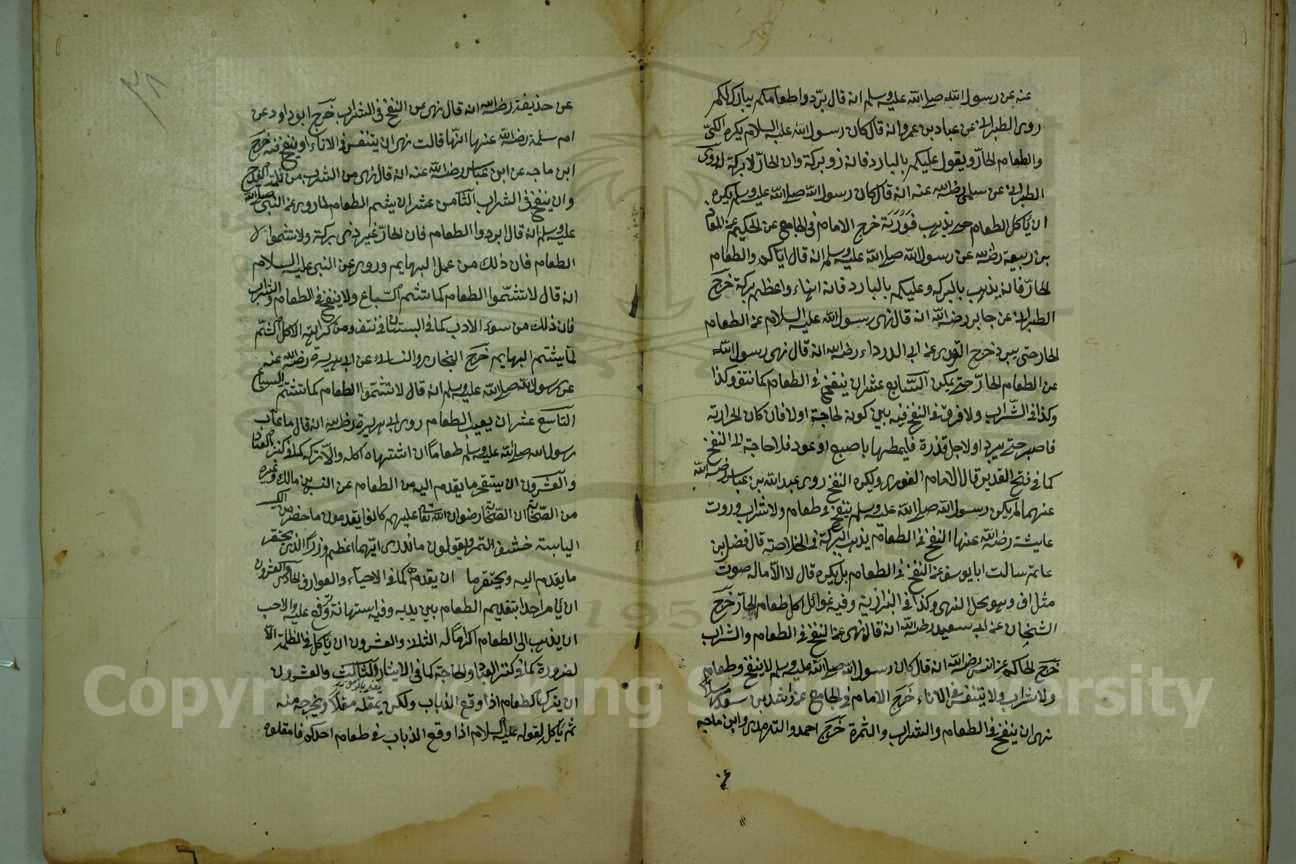 عنه عن رسول الله صلى الله عليه وسلم انه قال بردوا طعامكم يبارك لكم
روى الطبراني عن عباد بن عمرو انه قال كان رسول الله عليه السلام يكره الكي
والطعام الحار ويقول عليكم بالبارد فانه ذو بركة وان الحار لا بركة له روى
الطبراني عن سلمى رضي الله عنه انه قال كان رسول الله صلى الله عليه وسلم يكره
ان يأكل الطعام حتى يذهب فورته خرج الامام في الجامع عن الحكيم عن
بن ربيعة رضي الله عن رسول الله صلى الله عليه وسلم انه قال اياكم والطعام
الحار فانه يذهب بالبركة وعليكم بالبارد فانه اهناء واعظم بركة خرج
الطبراني عن جابر رضي الله انه قال نهى رسول الله عليه السلام عن الطعام
الحار حتى يبرد خرج عن ابي الدرداء رضي الله انه قال نهى رسول الله
عن الطعام الحار حتى يكن السابع عشر ان ينفخ في الطعام كما وكذا
وكذا في الشراب ولا فرق في النفخ فيه بين كونه لحاجة او لا فان كان لحرارته
فاصبر حتى يبرد او لاجل قذرة فليمطها باصبع او عود فلا حاجة الى النفخ
كما في فتح القدير قال الامام ويكره النفخ روى عبد الله بن عباس رضي الله
عنهما لم يكن رسول الله صلى الله عليه وسلم ينفخ في طعام ولا شراب وروت
عايشة رضي الله عنها النفخ في الطعام يذهب البركة في الخلاصة قال فضل بن
غانم سالت ابا يوسف عن النفخ في الطعام هل يكره قال لا الا ماله صوت
مثل اف وهو محل النهى وكذا في البزازية وفيه غوائل اكل طعام الحار خرج
الشيخان عن ابي سعيد رضي الله انه قال نهى عن النفخ في الطعام والشراب
خرج الحاكم عن انس رضي الله انه قال كان رسول الله صلى الله عليه وسلم لا ينفخ في طعام
ولا شراب ولا يتنفس في الاناء خرج الامام في الجامع عن
نهى ان ينفخ في الطعام والشراب والثمرة خرج احمد والترمذي وابن ماجه
٣٨
عن حذيفة رضي الله انه قال نهى عن النفخ في الشراب خرج ابو داود عن
ام سلمة رضي الله عنها انها قالت نهى ان يتنفس في الاناء او ينفخ فيه خرج
ابن ماجه عن ابن عباس رضي الله عنه انه قال نهى عن الشراب من ثلمة القدح
وان ينفخ في الشراب الثامن عشر ان يشم الطعام لما روى عن النبي صلى الله
عليه وسلم انه قال ابردوا الطعام فان الحار غير ذي بركة ولا تشموا
الطعام فان ذلك من عمل البهايم وروى عن النبي عليه السلام
انه قال لا تشموا الطعام كما تشم السباع ولا ينفخ في الطعام والشراب
فان ذلك من سوء الادب كما في البستان
كما يشتم البهايم خرج البخاري والنسائي عن ابي هريرة رضي الله عنه
عن رسول الله صلى الله عليه وسلم انه قال لا تشموا الطعام كما تشتم السباع
التاسع عشر ان يعيب الطعام روى ابي هريرة رضي الله انه قال ما عاب
رسول الله صلى الله عليه وسلم طعاما ان اشتهاه اكله والا تركه كما في كنز العباد
والعشرون ان يستحقر ما يقدم اليه من الطعام عن انس بن مالك وغيره
من الصحابة ان الصحابة رضوان الله تعالى عليهم كانوا يقدمون ما حضر من الكسر
اليابسة حشف التمر ويقولون ما ندري ايهما اعظم وزرا الذي يحتقر
ما يقدم اليه ويحتقر ما ان يقدمه كما في الاحياء والعوارف الحادي والعشرون
ان يامر احدا بتقديم الطعام بين يديه وفيه استهانة والاحب
ان يذهب الى الطعام اكراما له الثاني والعشرون ان يأكل في الظلمة الا
لضرورة كما في كنز العباد ولحاجة كما في الايثار الثالث والعشرون
ان يترك الطعام اذا وقع الذباب ولكن يمقله مقلا ويخرجه منه
ثم يأكل لقوله عليه السلام اذا وقع الذباب في طعام احدكم فامقلوه
Copyright © King Saud University
1957